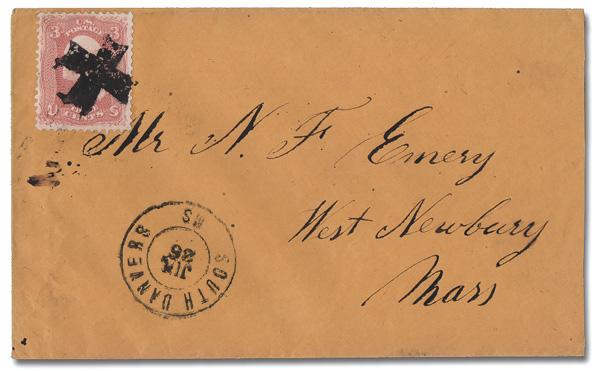 3 U.S. 3
POSTAGE
U S
CENTS
Mr N. F. Emery
West Newbury
Mass
SOUTH DANVERS MS